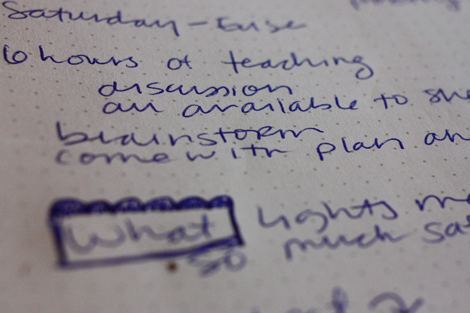 Saturday - Erise
6 hours of teaching
discussion
all available to
brainstorm
come with plan an
What lights
so much